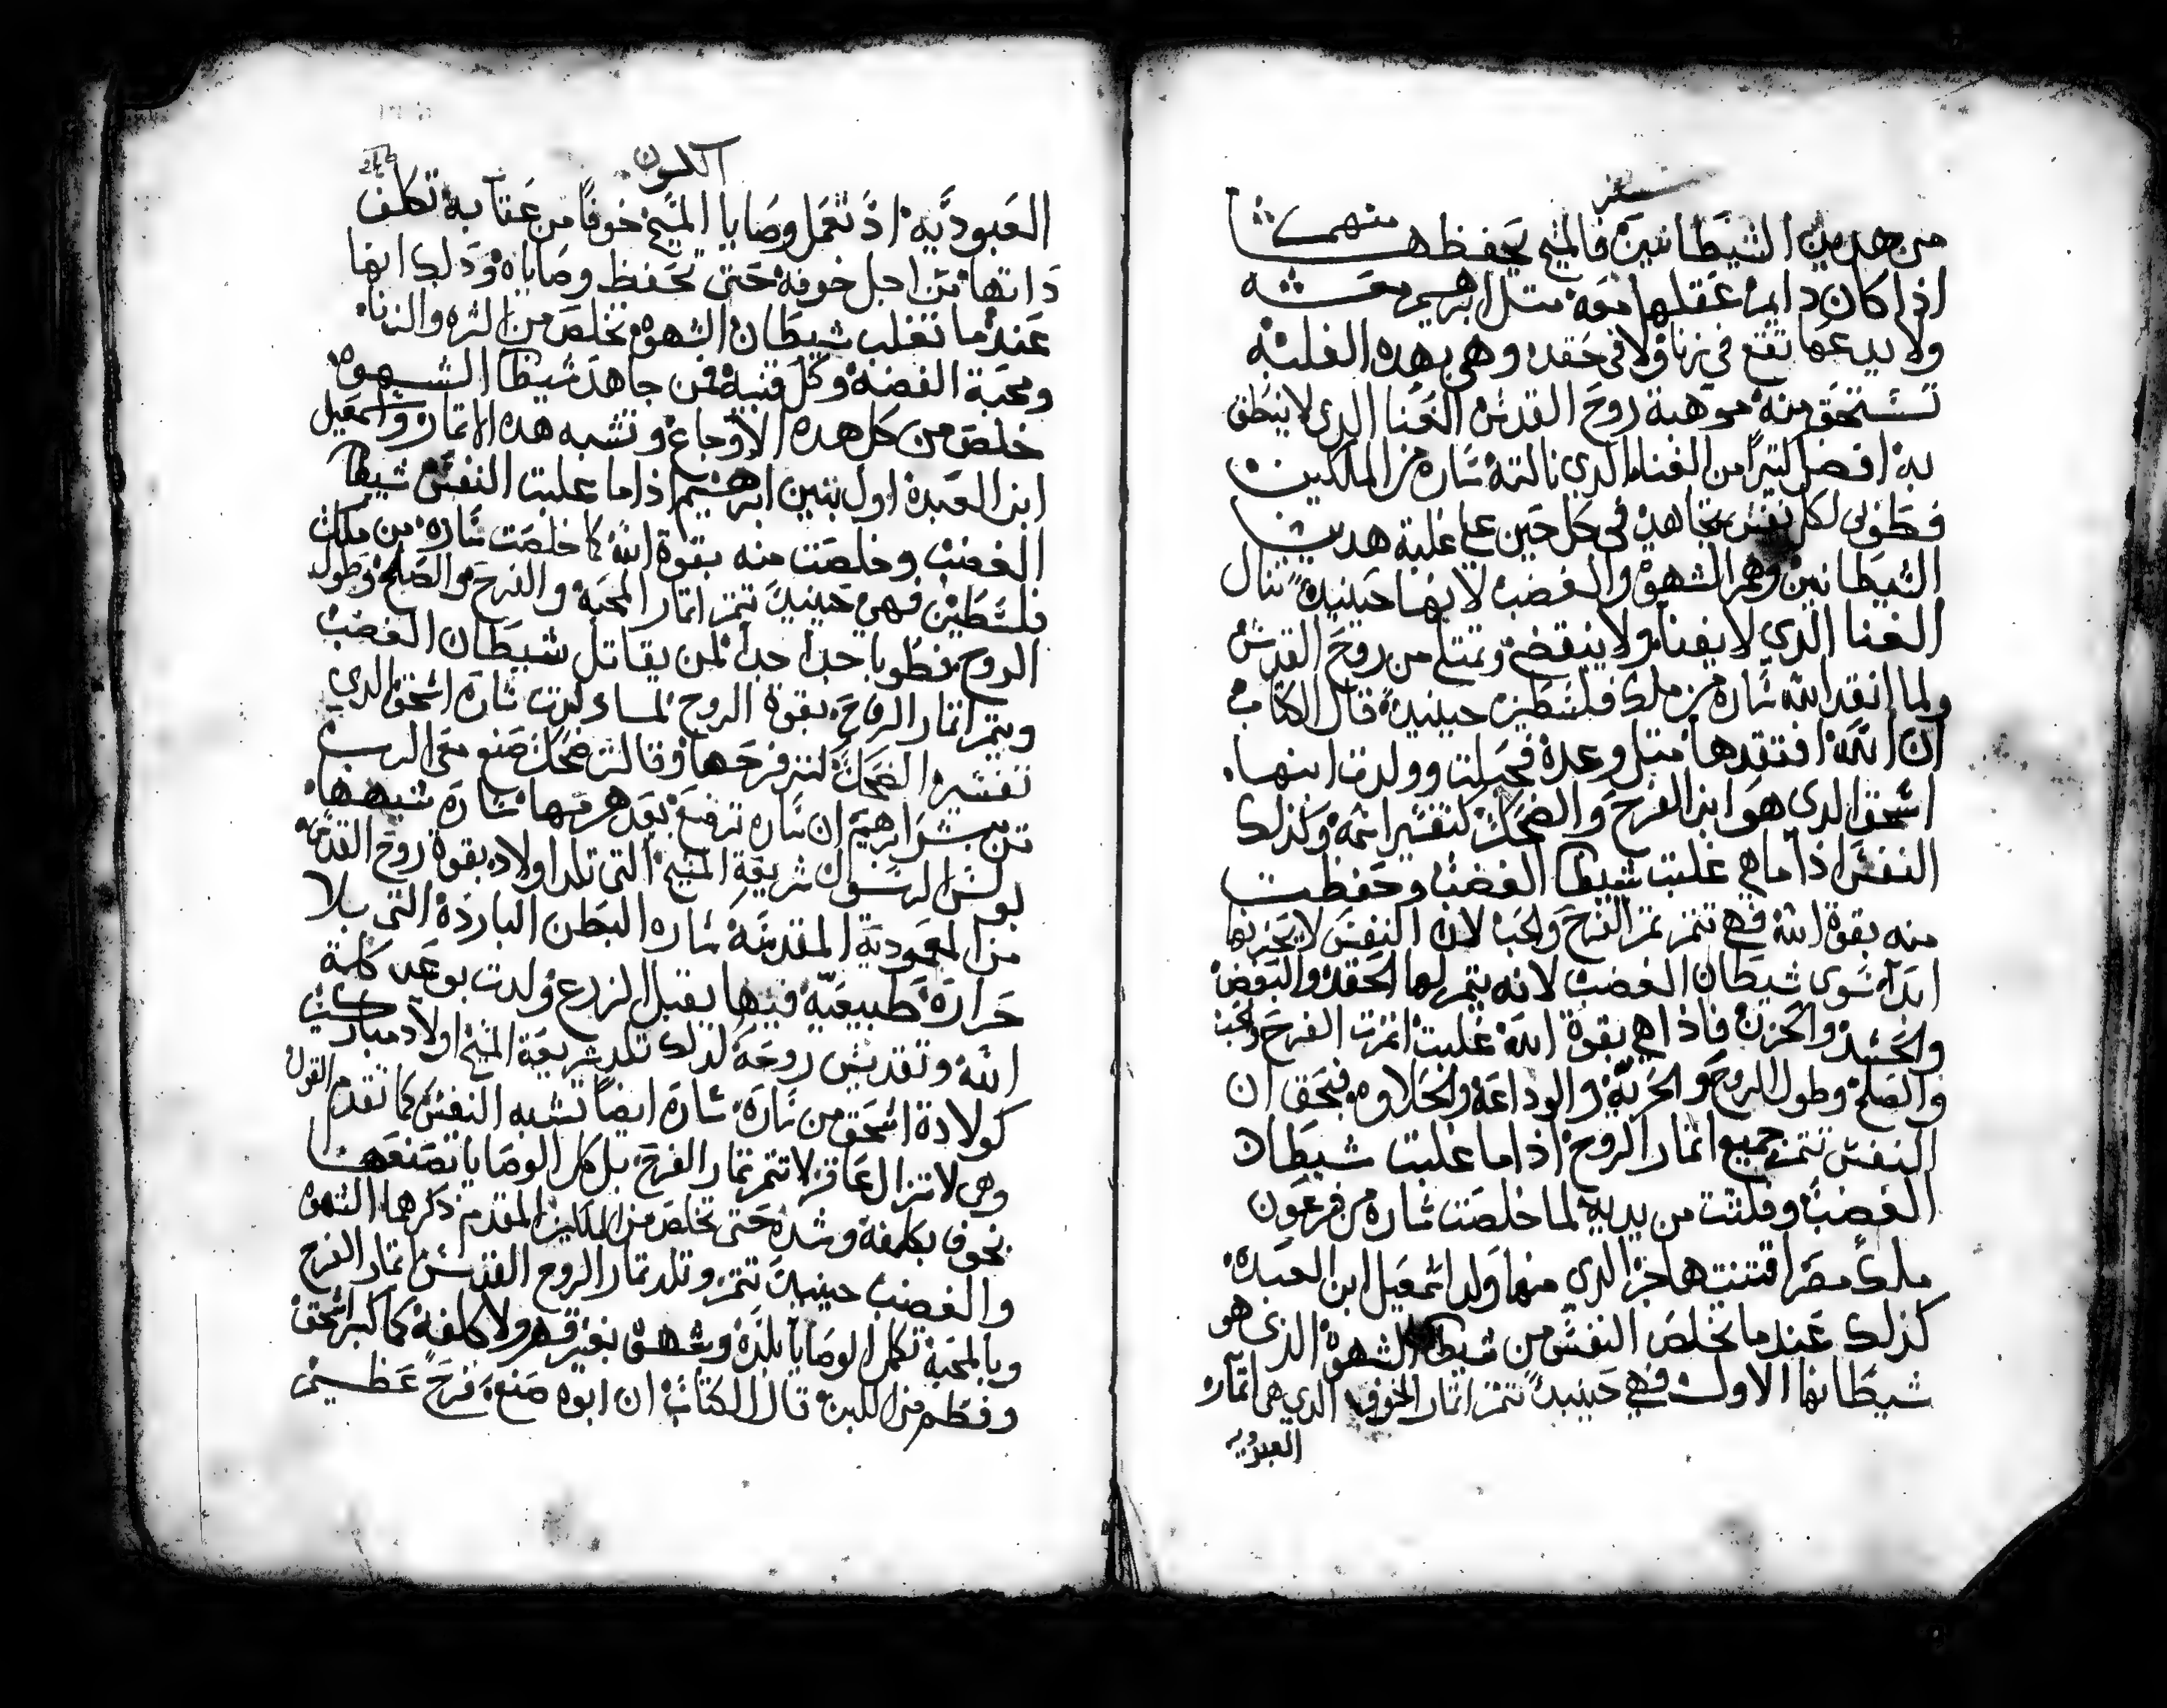 سفر
من هدين الشيطانين فالمسيح يحفظها منهما
اذا كان دايما عقلها معه متل ابرهيم معشه
ولا يدعها تقع في زنا ولا في حقد وهي بهده الغلبه
تستحق منه موهبة روح القدس الغنا الدي لا ينطق
به افضل كتيرا من الغنا الدي نالته ساره من الملكين
فطوبى لكل نفس تجاهد في كل حين على غلبة هدين
الشيطانين وهم الشهوه والغضب لانها حينيد تنال
الغنا الدي لا يفنا ولا ينقضي وتمتلي من روح القدس
ولما انقد الله ساره من ملك فلسطين حينيد قال الكتاب
ان الله افتقدها متل وعده فحبلت وولدت ابنها
اسحق الدي هو ابن الفرح والضحك كتفسير اسمه وكذلك
النفس اذا ما هي غلبت شيطان الغضب وحفظت
منه بقوة الله فهي تتمر تمر الفرح والحب لان النفس لا يحزنها
ابدا سوى شيطان الغضب لانه يتمر لها الحقد والبغض
والحسد والحزن فاذا هي بقوة الله غلبت اتمرت الفرح والحب
والصلح وطول الروح والحريه والوداعة والحلاوه فبحق ان
النفس تتمر جميع اتمار الروح اذا ما غلبت شيطان
الغضب وفلتت من يديه لما خلصت ساره من فرعون
ملك مصر اقتنت هاجر الدي منها ولد اسمعيل ابن العبده
كذلك عندما تخلص النفس من شيطان الشهوة الذي هو
شيطانها الاول فهي حينيد تتمر اتمار الخوف الدي هي اتمار
العبوديه
الكون
العبوديه اذ تعمل وصايا المسيح خوفا من عقابه تكلف
داتها من اجل خوفه حتى تحفظ وصاياه ودلك انها
عندما تغلب شيطان الشهوه تخلص من الشره والزنا
ومحبة الفضه وكل قنيه فمن جاهد شيطان الشهوه
خلص من كل هده الاوجاع وتشبه هده الاتمار واسمعيل
ابن العبده اول بنين ابرهيم اذا ما غلبت النفس شيطان
الغضب وخلصت منه بقوة الله كما خلصت ساره من ملك
فلسطين فهي حينيد تتمر اتمار المحبه والفرح والصلح وطول
الروح فطوبا جدا جدا لمن يقاتل شيطان الغضب
ويتمر اتمار الروح بقوة الروح لما ولدت ساره اسحق الدي
تفسيره الضحك لتر فرحها وقالت ضحك صنع معي الرب
من يبشر ابرهيم ان ساره ترضع بعد هرمها ساره شبهها
بولس الرسول ان شريعة المسيح التي تلد اولاد بقوة روح القدس
من المعموديه المقدسه ساره البطن البارده التي بلا
حراره طبيعيه فيها بقبل الزرع ولدت بوعد كلمة
الله وتقديس روحه لدلك تلد شريعة المسيح اولاد مباركين
كولادة اسحق من ساره ساره ايضا تشبه النفس كما تقدم القول
وهي لا تزال عاقر لا تتمر تمار الفرح بل كل الوصايا تصنعها
بخوف بكلفة وشده حتى تخلص من الملكين المقدم ذكرها الشهوه
والغضب حينيد تتمر وتلد تمار الروح القدس اتمار الفرح
وبالمحبة تكمل الوصايا بلذه وشهوة بغير قهر ولا كلفة كما كبر اسحق
وفطم من اللبن قال الكتاب ان ابوه صنع فرح عظيم